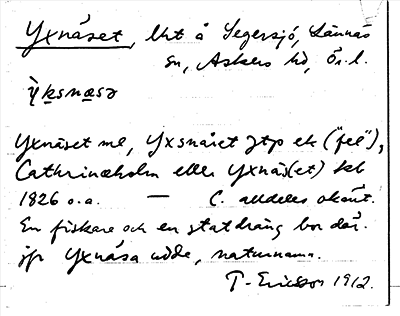 Yxnäset, lht å Segersjö, Lännäs
sn, Askers hd, Ör. l.
ỳksnæsə
Yxnäset ml, Yxsnäset gtp ek ("fel"),
Cathrineholm eller Yxnäs(et) kbl
1826 o.a. — C. alldeles okänt.
En fiskare och en statdräng bor där.
jfr Yxnäsa udde, naturnamn.
T. Ericsson 1912.